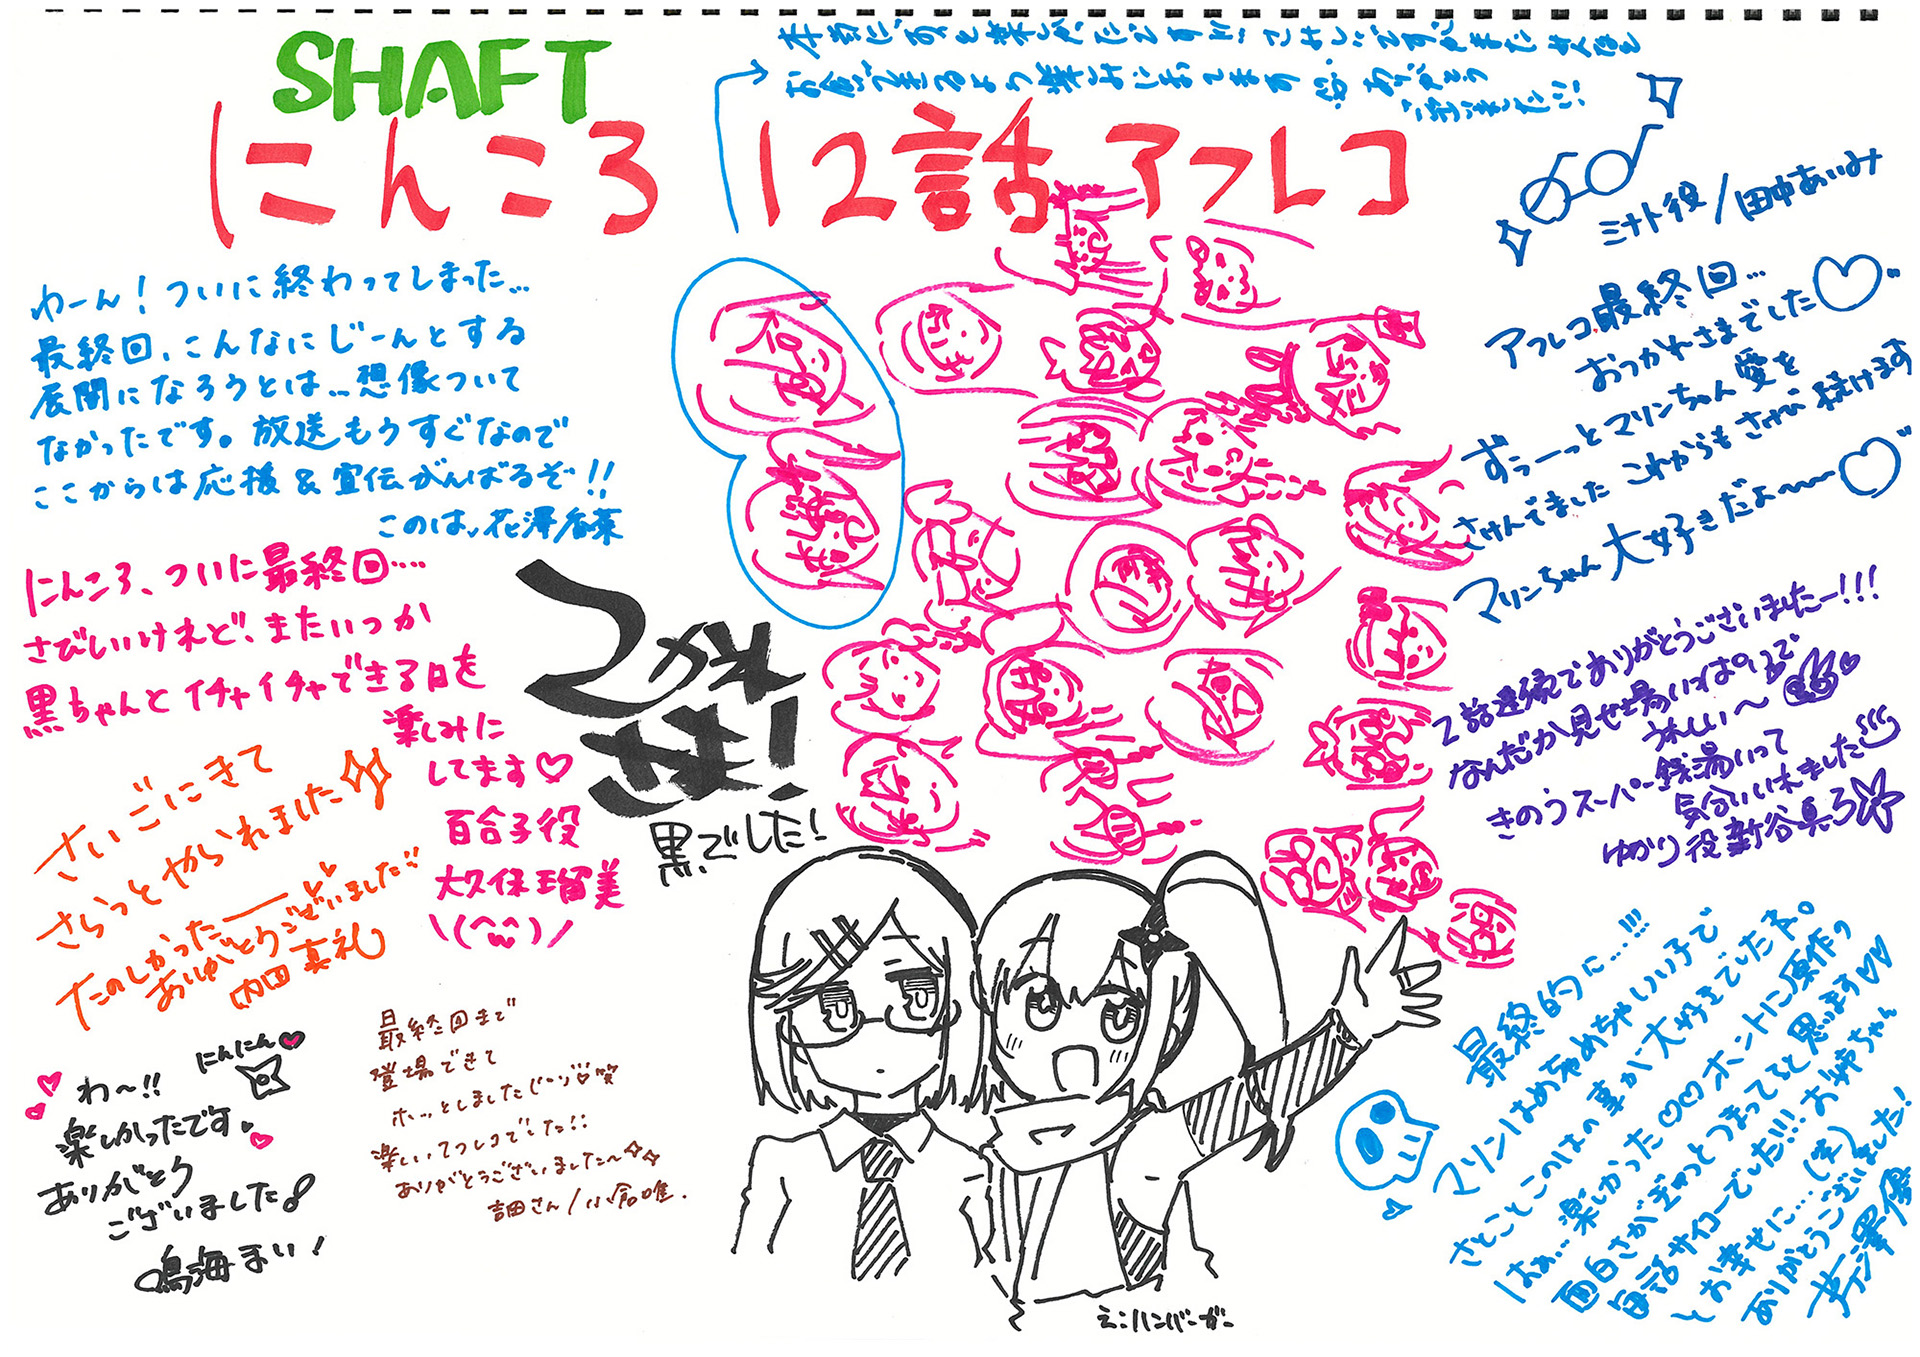 SHAFT
にんころ 12話 アフレコ
わーん！ついに終わってしまった…
最終回、こんなにじーんとする
展開になろうとは…想像ついて
なかったです。放送もうすぐなので
ここからは応援&宣伝がんばるぞ!!
このは、花澤香菜
にんころ、ついに最終回‥‥
さびしいけれど、またいつか
黒ちゃんとイチャイチャできる日を
楽しみに
してます♡
百合子役
大久保瑠美
\(^ω^)/
さいごにきて
さらっとやられました
たのしかったーー
ありがとうございました
内田真礼
にんにん
わ〜!!
楽しかったです。
ありがとう
ございました
鳴海まい！
最終回まで
登場できて
ホッとしました
楽しいアフレコでした!!
ありがとうございました〜
吉田さん/小倉唯.
つかれ
さま！
黒でした！
えこ:ハンバーガー
ミナト役/田中あいみ
アフレコ最終回…
おつかれさまでした♡
ずぅーっとマリンちゃん愛を
さけんでました これからもさけび続けます
マリンちゃん大好きだよ〜〜♡
2話連続でありがとうございましたー!!!
なんだか見せ場いっぱいで
うれしい〜
きのうスーパー銭湯いって
気分いいれました
ゆかり役 新谷真弓
最終的に…!!!
マリンはめちゃめちゃいい子で
さとことこのはの事が大好きでしたネ。
はぁ…楽しかった♡♡ホントに原作の
面白さがぎゅっとつまってると思います♡♡
毎話サイコーでした!!! お姉ちゃん
とお幸せに…(笑)
ありがとうございました！
芹澤優